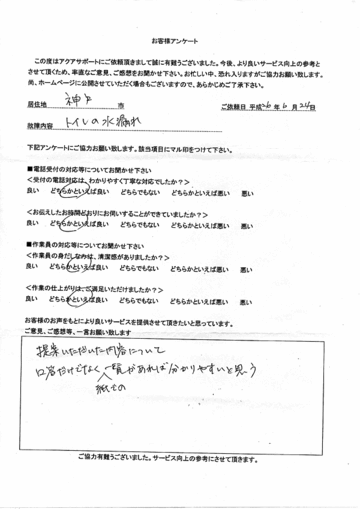 お客様アンケート
この度はアクアサポートにご依頼頂きまして誠に有難うございました。今後、より良いサービス向上の参考と
させて頂くため、率直なご意見、ご感想をお聞かせ下さい。お忙しい中、恐れ入りますがご協力お願い致します。
尚、ホームページに公開させていただく場合もございますので、あらかじめご了承下さい。
居住地 神戸 市 ご依頼日 平成26年6月24日
故障内容 トイレの水漏れ
下記アンケートにご協力お願い致します。該当項目にマル印をつけて下さい。
■電話受付の対応等についてお聞かせ下さい
<受付の電話対応は、わかりやすく丁寧な対応でしたか?>
良い どちらかといえば良い どちらでもない どちらかといえば悪い 悪い
<お伝えしたお時間どおりにお伺いすることができていましたか?>
良い どちらかといえば良い どちらでもない どちらかといえば悪い 悪い
■作業員の対応等についてお聞かせ下さい
<作業員の身だしなみは、清潔感がありましたか?>
良い どちらかといえば良い どちらでもない どちらかといえば悪い 悪い
<作業の仕上がりは、ご満足いただけましたか?>
良い どちらかといえば良い どちらでもない どちらかといえば悪い 悪い
お客様のお声をもとにより良いサービスを提供させて頂きたいと思っています。
ご意見、ご感想等、一言お願い致します
提案いただいた内容について
口答だけでなく 一覧があれば分かりやすいと思う
紙での
ご協力有難うございました。サービス向上の参考にさせて頂きます。